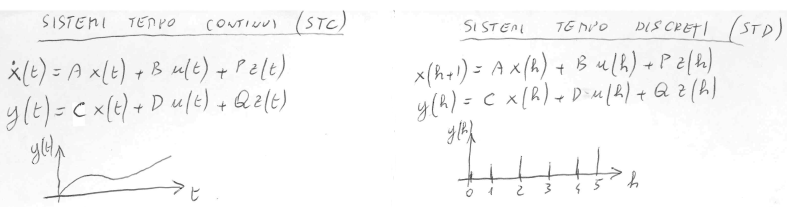 SISTEMI TEMPO CONTINUI (STC)
ẋ(t) = A x(t) + B u(t) + P z(t)
y(t) = C x(t) + D u(t) + Q z(t)
y(t)
t
SISTEMI TEMPO DISCRETI (STD)
x(h+1) = A x(h) + B u(h) + P z(h)
y(h) = C x(h) + D u(h) + Q z(h)
y(h)
0 1 2 3 4 5 h